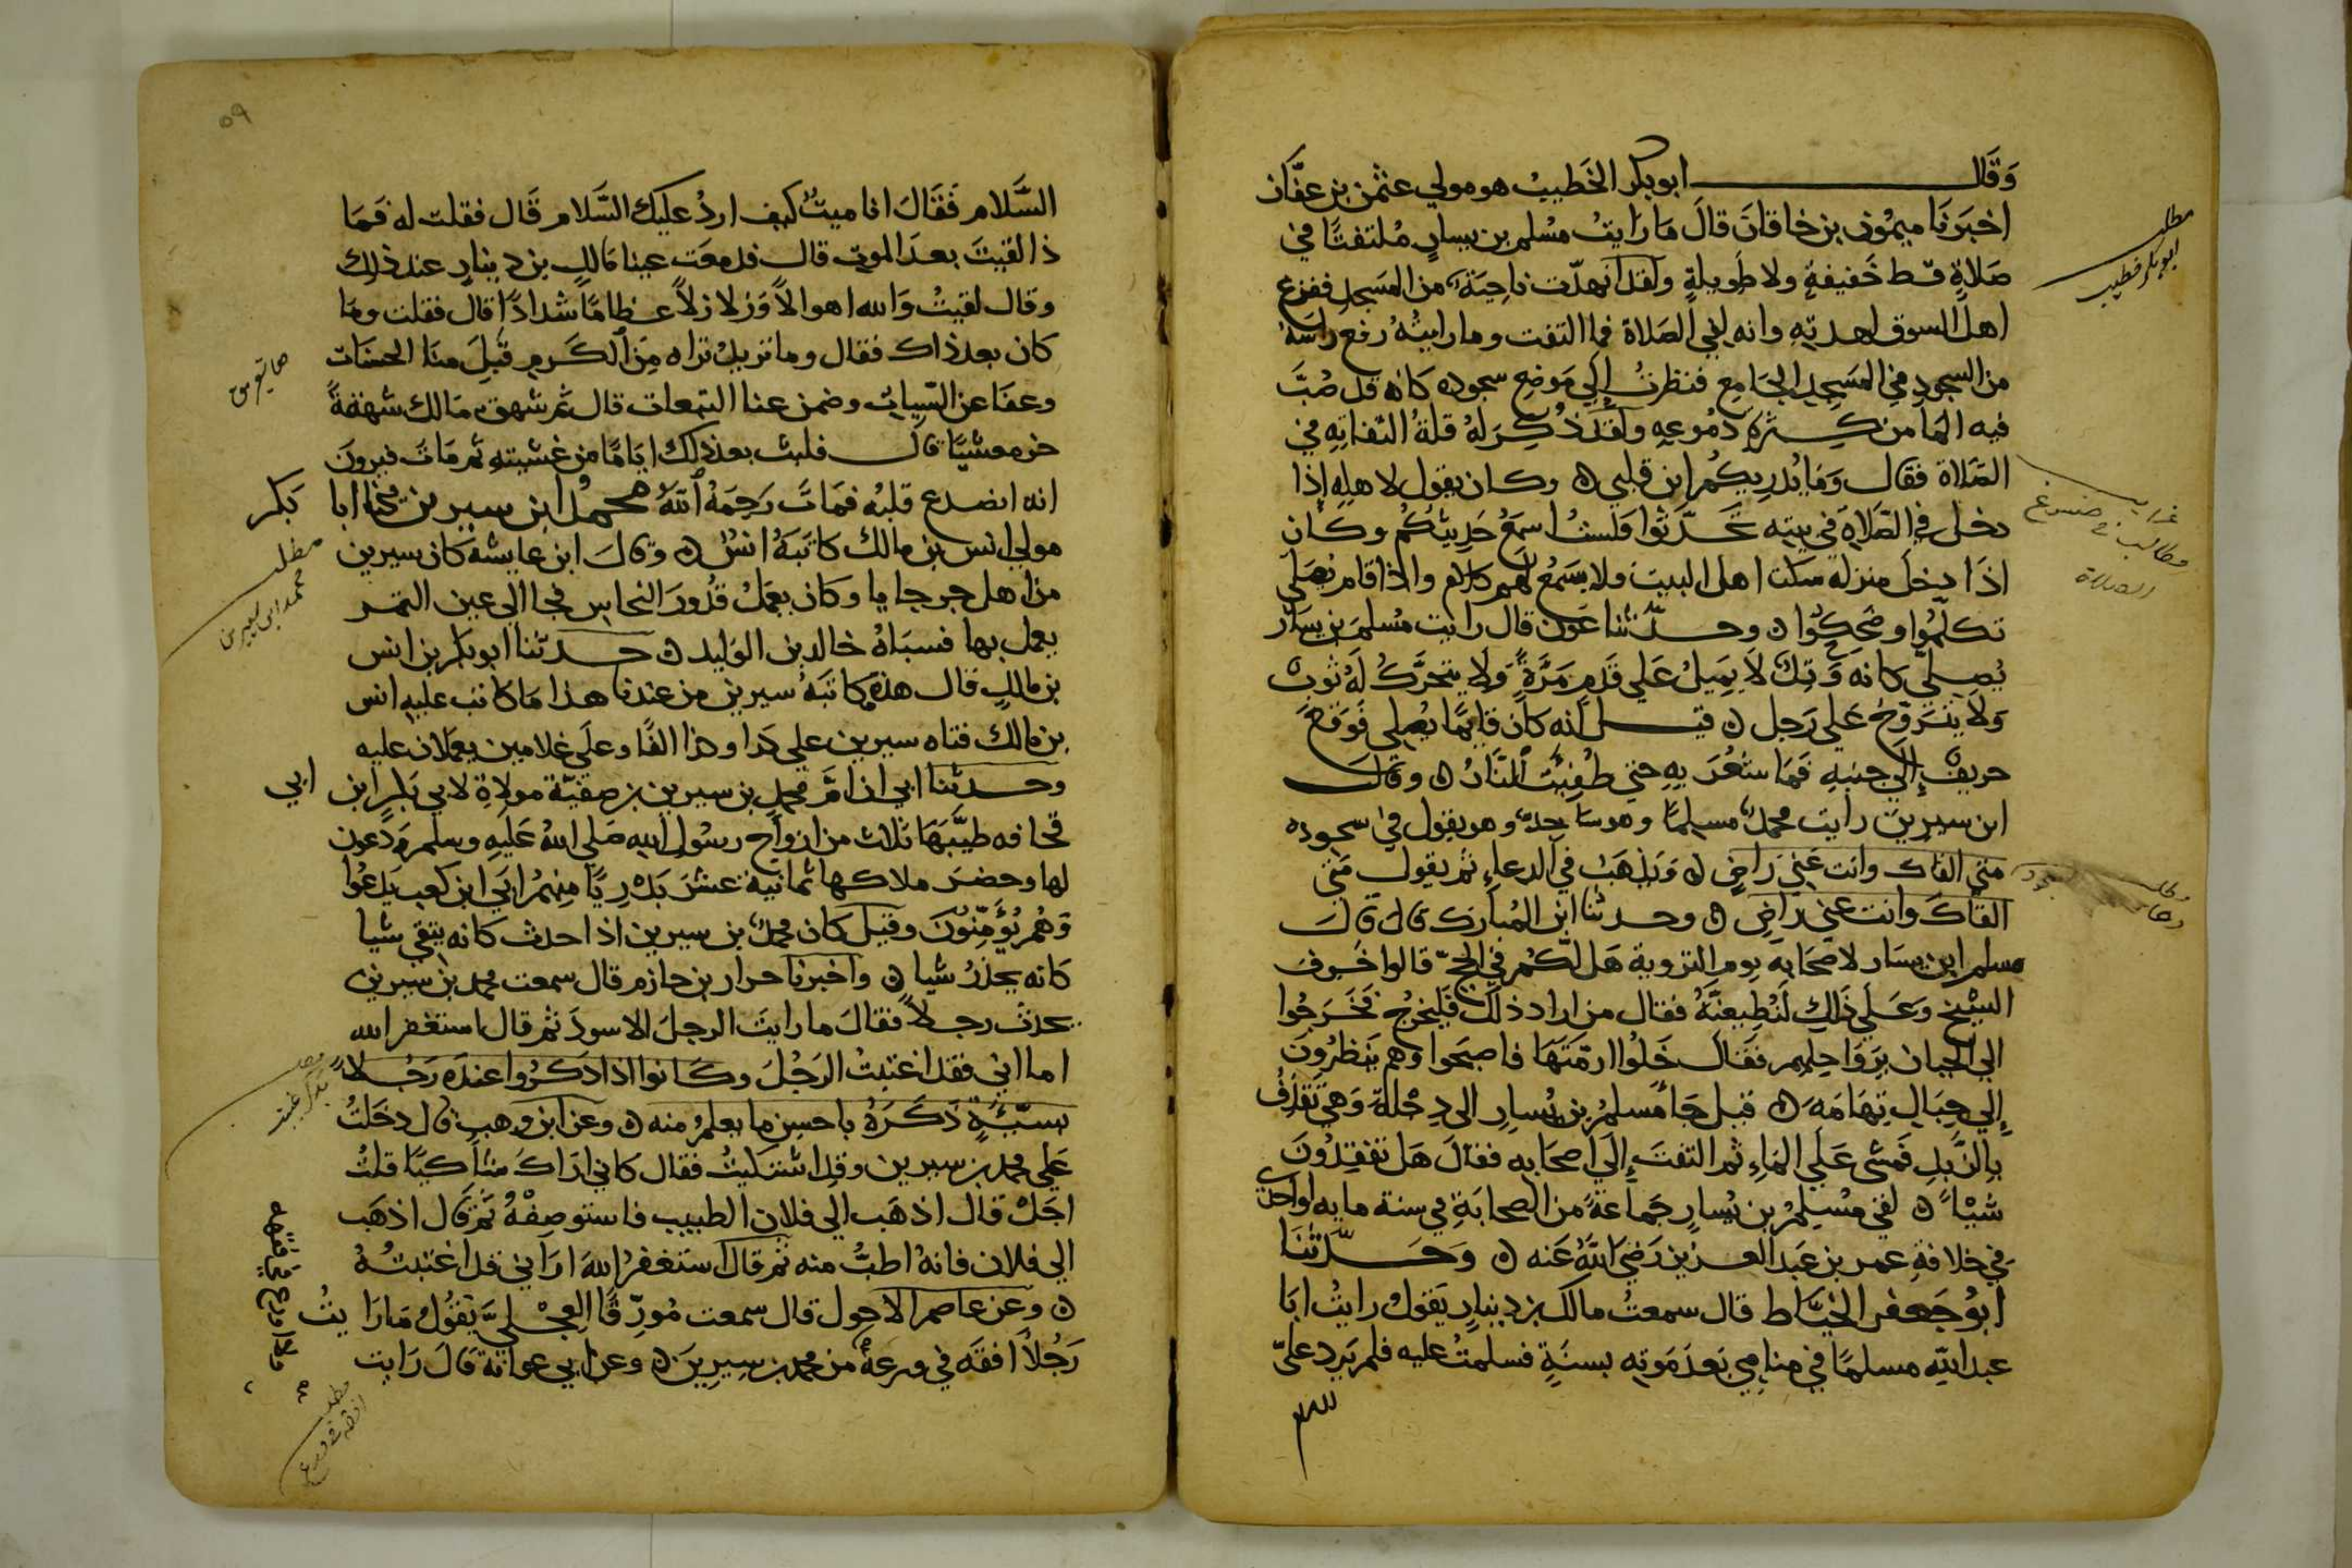 وَقَالَ ابوبكر الخَطيبُ هو مولي عثمن بن عفَّان
اخبَرنَا ميمُون بن خاقانَ قالَ مَا رَايتُ مُسْلم بن يسارٍ مُلتفتًا في
صَلاةٍ قط خَفيفةٍ ولا طَويلةٍ ولقد انهدّت ناحيَةٌ من المَسجدِ ففزع
اهل السوق لهدتهِ وانه لفي الصَلاة فما التفت وما رايتُهُ رفع راسَهُ
من السجودِ في المَسجد الجَامع فنظرتُ إلي مَوضع سجوده كانه قد صُبَّ
فيه المَا من كثرة دمُوعهِ ولقَد ذُكِرَ لهُ قلةُ التفاته في
الصَلاة فقال وَمَا يُدريكُم اين قلبي ه وكان يقول لاهله إذَا
دخل في الصَّلاةِ في بيته تحَدّثوا فلستُ اسمعُ حَديثكُم وكان
اذَا دخلَ منزله سكت اهل البيت ولا يسَمعُ لهم كلام واذا قام يُصَلي
تكلّمُوا وضَحِكُوا ه وحدّثنا عَون قال رايت مُسْلمَ بن يسَار
يُصلّي كانه وَتِدٌ لا يَميلُ عَلي قَدمٍ مَرَّةً وَلا يتحَرَّكُ لَهُ ثوبٌ
وَلا يتَرَوَّحُ عَلي رَجل ه قيل انه كان قايمًا يُصلي فوَقعَ
حريقٌ إلي جنبهِ فمَا شعُرَ بهِ حتي طُفِيَت النَّارُ ه وقالَ
ابن سيرين رايت محمدٌ مسلمًا وهو ساجدٌ وهو يقول في سجوده
مَتي القاك وانت عَنِّي رَاضٍ ه وَيَذهَبُ في الدعاءِ ثم يقول مَتي
القاكَ وانت عني رَاضٍ ه وحدثنا ابن المُبارك قال قالَ
مسلم ابن يسَار لاصحَابه يوم التروية هَل لكُم في الحجّ قالوا خَرف
الشيْخ وَعَلي ذَلكِ لَنُطِيعَنَّهُ فقال من اراد ذلكَ فَليَخرُج فخَرَجُوا
الي الجبان برَوَاحِلِهم فقالَ خَلّوا ازمّتَهَا فاصبحوا وهم ينظرُونَ
إلي جبَالِ تِهَامَة ه قيل جَا مُسلمُ بن يُسارٍ الي دجْلةَ وَهي تَقذِفُ
بالزَّبدِ فمشي عَلَي المَاءِ ثم التفتَ إلي اصحَابه فقالَ هَل تفقدُونَ
شيْاً ه لقي مُسْلِمُ بن يُسارٍ جَماعةً من الصحابَةِ في سنة مايه او احدي
في خلافةِ عمر بن عَبدالعزيز رَضيَ اللهُ عَنه ه وَحَدّثنَا
ابوُ جَعفر الخيَّاط قال سمعتُ مالك بن دينارٍ يَقولُ رايتُ ابَا
عبد اللهِ مسلمًا في منامي بَعدَ مَوته بسنَةٍ فسلمتُ عليه فلم يَرد عليّ
مطلب
ابوبكر خطيب
الصلاة
٥٩
السَّلام فَقَالَ انا ميتٌ كيف اردُ عليكَ السَّلام قَال فقلت له فَمَا
ذا لقيتَ بعدَ الموت قال فدمعَت عينا مَالك بن دينارٍ عند ذلك
وقال لقيتُ وَالله اهوالاً وَزلازلاً عظامًا شدادًا قال فقلت ومَا
كان بعد ذاك فقال وما تريدُ تراه مِن الكَرم قَبِلَ منَا الحسَنات
وعفَا عن السّيات وضمن عنا التبعات قال ثم شهق مَالك شهقةً
خر مغشيًا قالَ فلبث بعد ذلك ايَامًا من غشيتهِ ثم مَاتَ فيرونَ
انه انصدع قلبُه فمَاتَ رَحِمَهُ اللهُ محمد ابن سيرين يُكنا ابا بَكر
مولي انس بن مالك كاتَبَهُ انسٌ ه وقالَ ابن عايشه كان سيرين
من اهل جرجايا وكان يعمَلُ قدُورَ النحاسِ فجا الي عين التمر
يعمل بها فسبَاهُ خالد بن الوَليد ه حدثنا ابوبكر بن انس
بن مالكٍ قال هذه مكاتبَةُ سيرين من عندنا هذا مَا كاتب عليهِ انس
بن مالك فتاه سيرين علي كذا وكذا الفًا وعلَي غلامين يعملان عليه
وحدثنا ابي ان امَّ محمد بن سيرين صفيّة مولاةِ لابي بكرٍ ابن ابي
قحافه طيَّبَهَا ثلاث من ازواج رسُولِ اللهِ صَلي اللهُ عَلَيهِ وسلم وَدَعون
لها وحضرَ ملاكها ثمانيةَ عشرَ بَدْريًا منِهمُ ابَي ابن كعب يَدعُوا
وَهُم يُؤَمِّنُونَ وقيل كان محمدُ بن سيرين اذا حدث كانه يتقي شيا
كانه يحذرُ شياً ه واخبرنا جرار بن حازم قال سمعت محمد بن سيرين
يحدث رجلاً فقالَ ما رايتَ الرجلَ الاسودَ ثم قال استغفر الله
اما اني فقد اغتبتُ الرَجُلَ وكَانوا اذا ذكَرُوا عندَه رَجُلاً
بسيّئةٍ ذَكَرَهُ باحسِن ما يعلمُ منه ه وعن ابن وهبٍ قال دخَلتُ
عَلي محمد بن سيرين وقد اشتكيتُ فقال كاني ارَاكَ شاكيًا قلتُ
اجَلْ قال اذهَب الي فلان الطبيب فاستوصِفْهُ ثم قَال اذهَب
الي فلان فانهُ اطبُّ منه ثم قالَ استغفرُ اللهَ ارَاني قد اغتبتُهُ
ه وعن عاصم الاحول قال سمعت مُورِّقًا العِجْليَّ يَقُولُ مَا رَايتُ
رَجُلاً افقَه في ورعهِ من محمد بن سيرينَ ه وعن ابي عوانة قالَ رَايت
مطلب
محمد ابن سيرين
مطلب
مطلب